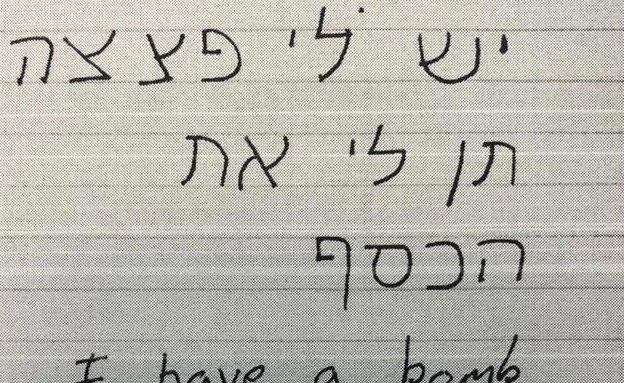 יש לי פצצה
תן לי את
הכסף
I have a bomb